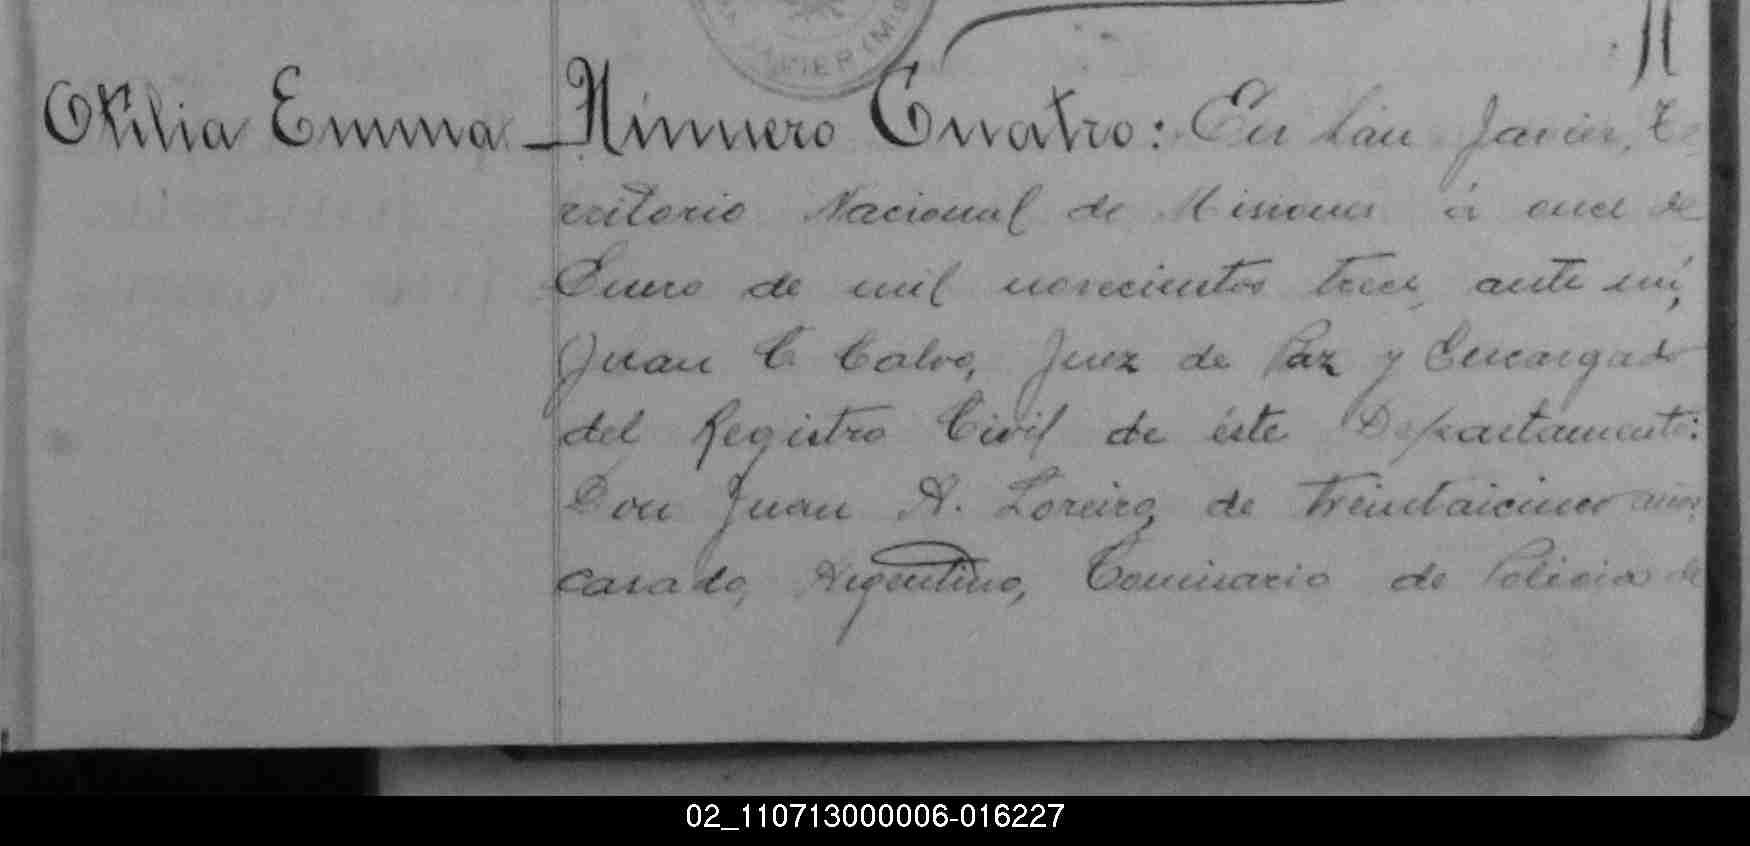 Otilia Emma - Número Cuatro: En San Javier, Te
rritorio Nacional de Misiones á once de
Enero de mil novecientos trece, ante mí,
Juan C. Calvo, Juez de Paz y Encargado
del Registro Civil de éste Departamento:
Don Juan A. Loreiro, de treintaicinco años,
casado, Argentino, Comisario de Policia de
02_110713000006-016227